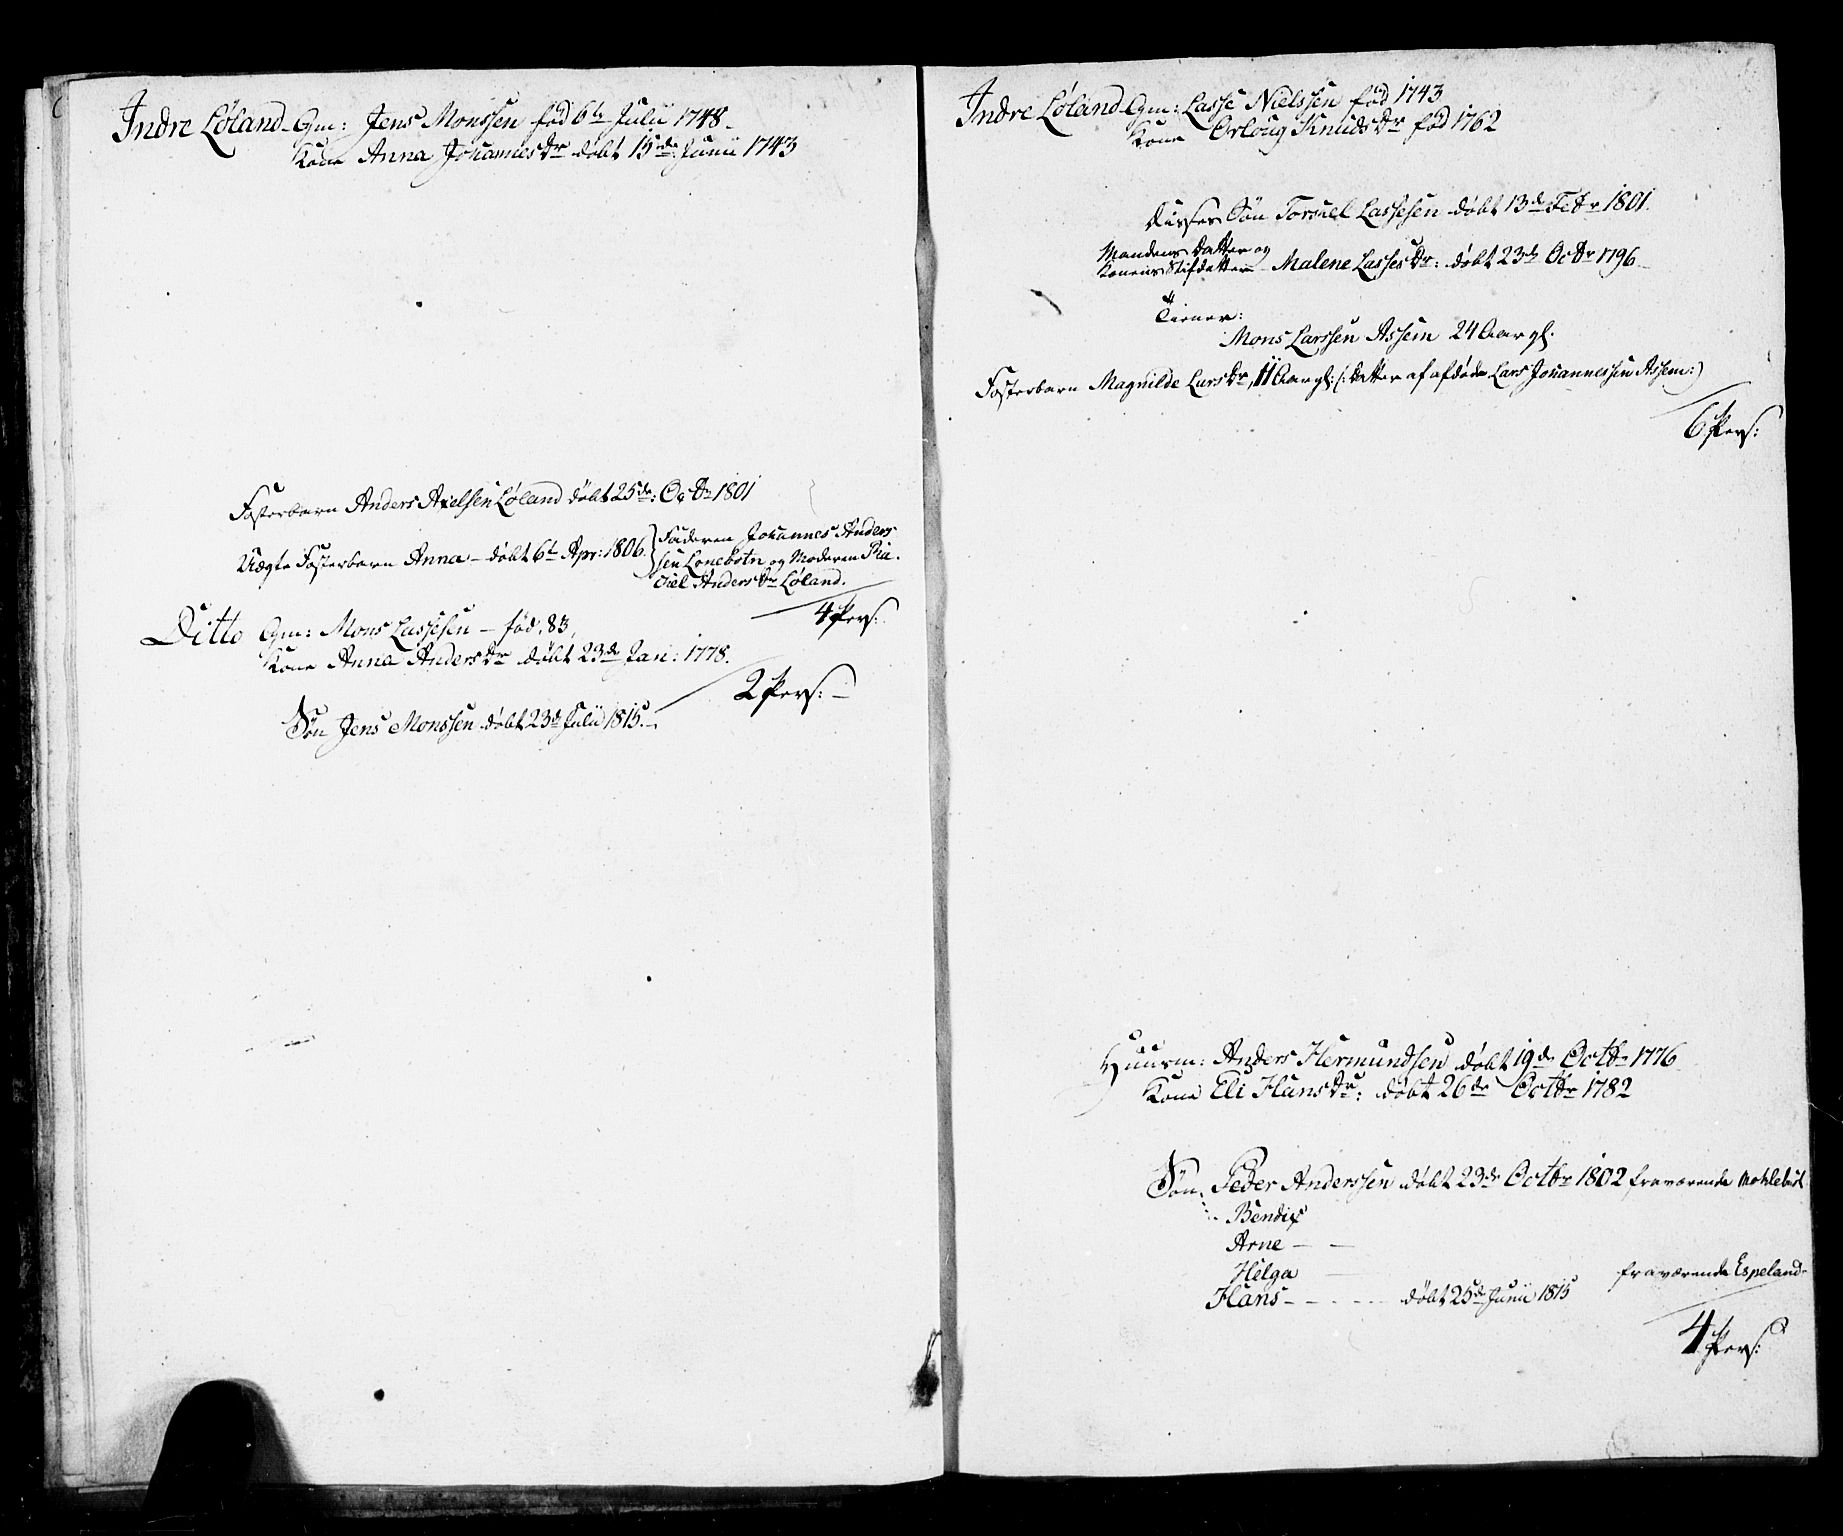 Indre Løland Gm: Jens Monssen fød 6te Julii 1748
Kone Anna Johannesdr døbt 15de Junii 1743
Fosterbarn Anders Axelsen Løland døbt 25de: Octbr 1801
Uægte Fosterbarn Anna – døbt 6te Apr: 1806. } Faderen Johannes Anders
sen Lonebotn og Moderen Ra
chel Andersdr Løland.
4 Pers:
Ditto Gm: Mons Lassesen – fød, 83,
Kone Anna Andersdr døbt 23de Jan: 1778.
2 Pers: –
Søn Jens Monssen døbt 23de Julii 1815. –
Indre Løland Gm: Lasse Nielssen fød 1743
Kone Orloug Knudsdr fød 1762
Disses Søn Torkiel Lassesen døbt 13de Febr 1801.
Mandens Datter og
Konens Stifdatter – Malene Lassesdr: døbt 23de Octbr 1796 –
Tiener:
Mons Larssen Assem 24 Aar gl.
Fosterbarn Magnilde Larsdr, 11 Aar gl: (: Datter af afdøde Lars Johannessen Assem:)
6 Pers:
Huusm: Anders Hermundsen døbt 19de Octbr 1776
Kone Eli Hansdr: døbt 26de Octbr 1782
Søn Peder Anderssen døbt 23de Octbr 1802 fraværende
Bendix
Arne – –
Helga – fraværende Espeland
Hans – – – – døbt 25de Junii 1815
4 Pers: